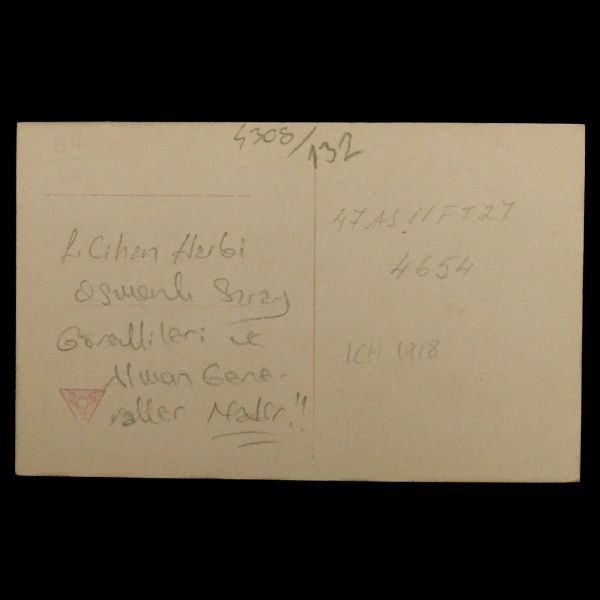 4308/132
I. Cihan Harbi
Osmanlı Saray
Görevlileri ve
Alman Gene-
raller Nadir!!
47 AS 11 FT 27
4654
ICH 1918